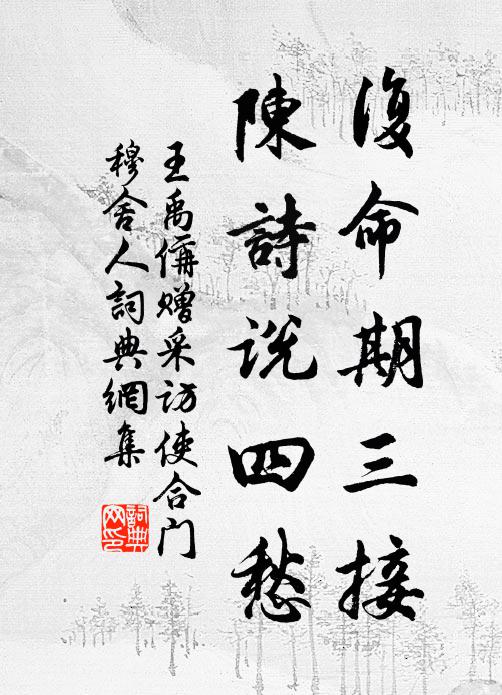 復命期三接
陳詩説四愁
王禹偁赠采访使合门
穆舍人詞典網集
詞典網印